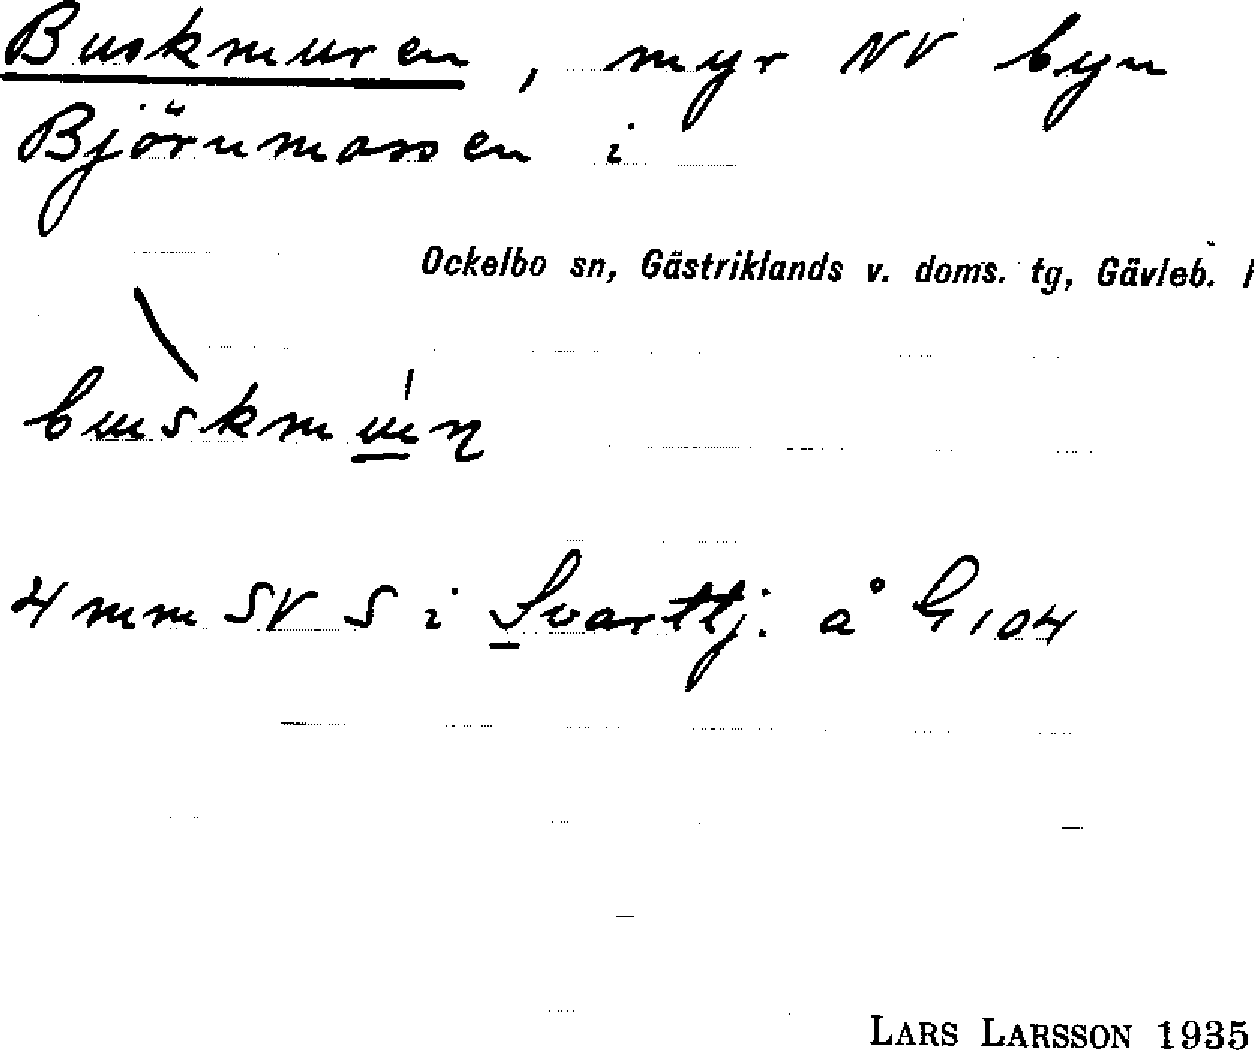 Buskmuren, myr NV byn
Björnmossen i
Ockelbo sn, Gästriklands v. doms. tg, Gävleb.
buskmu̲n
4 mm SV S i Svarttj. å G 104
LARS LARSSON 1935